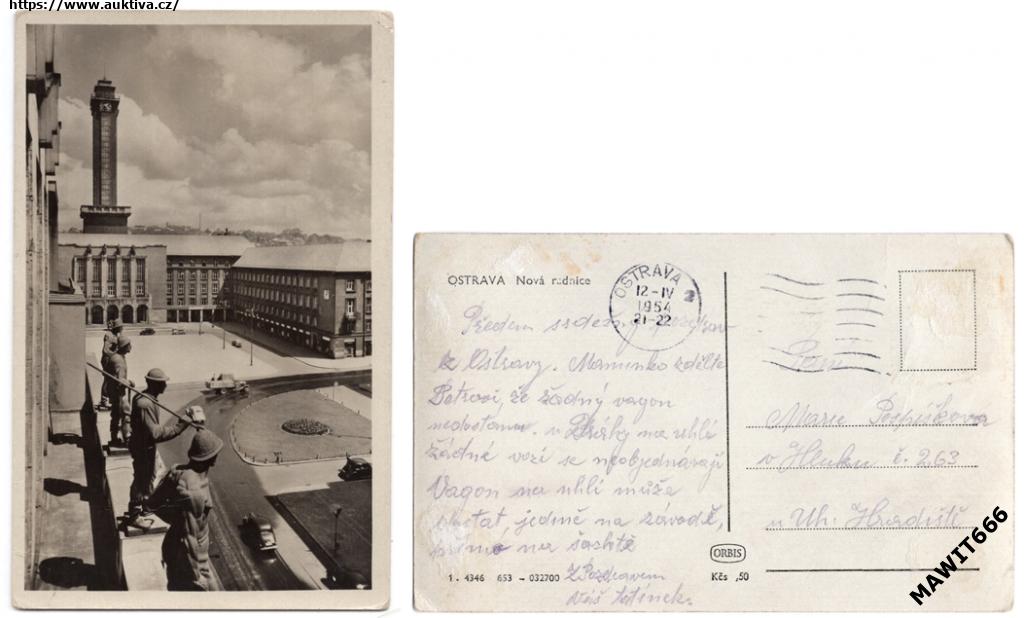 https://www.auktiva.cz/
OSTRAVA Nová radnice
OSTRAVA 2
12-IV
1954
21-22
Předem srdečný pozdrav
z Ostravy. Maminko sdělte
Petrovi, že žádný vagon
nedostanu. u Dráhy na uhlí
žádné vozí se neobjednávají
Vagon na uhlí může
dostat jedině na závodě,
na šachtě
Z Pozdravem
Váš
Paní
Marie
v Hluku č. 263
u Uh. Hradiště
ORBIS
1. 4346 653 - 032700
Kčs ,50
MAWIT666